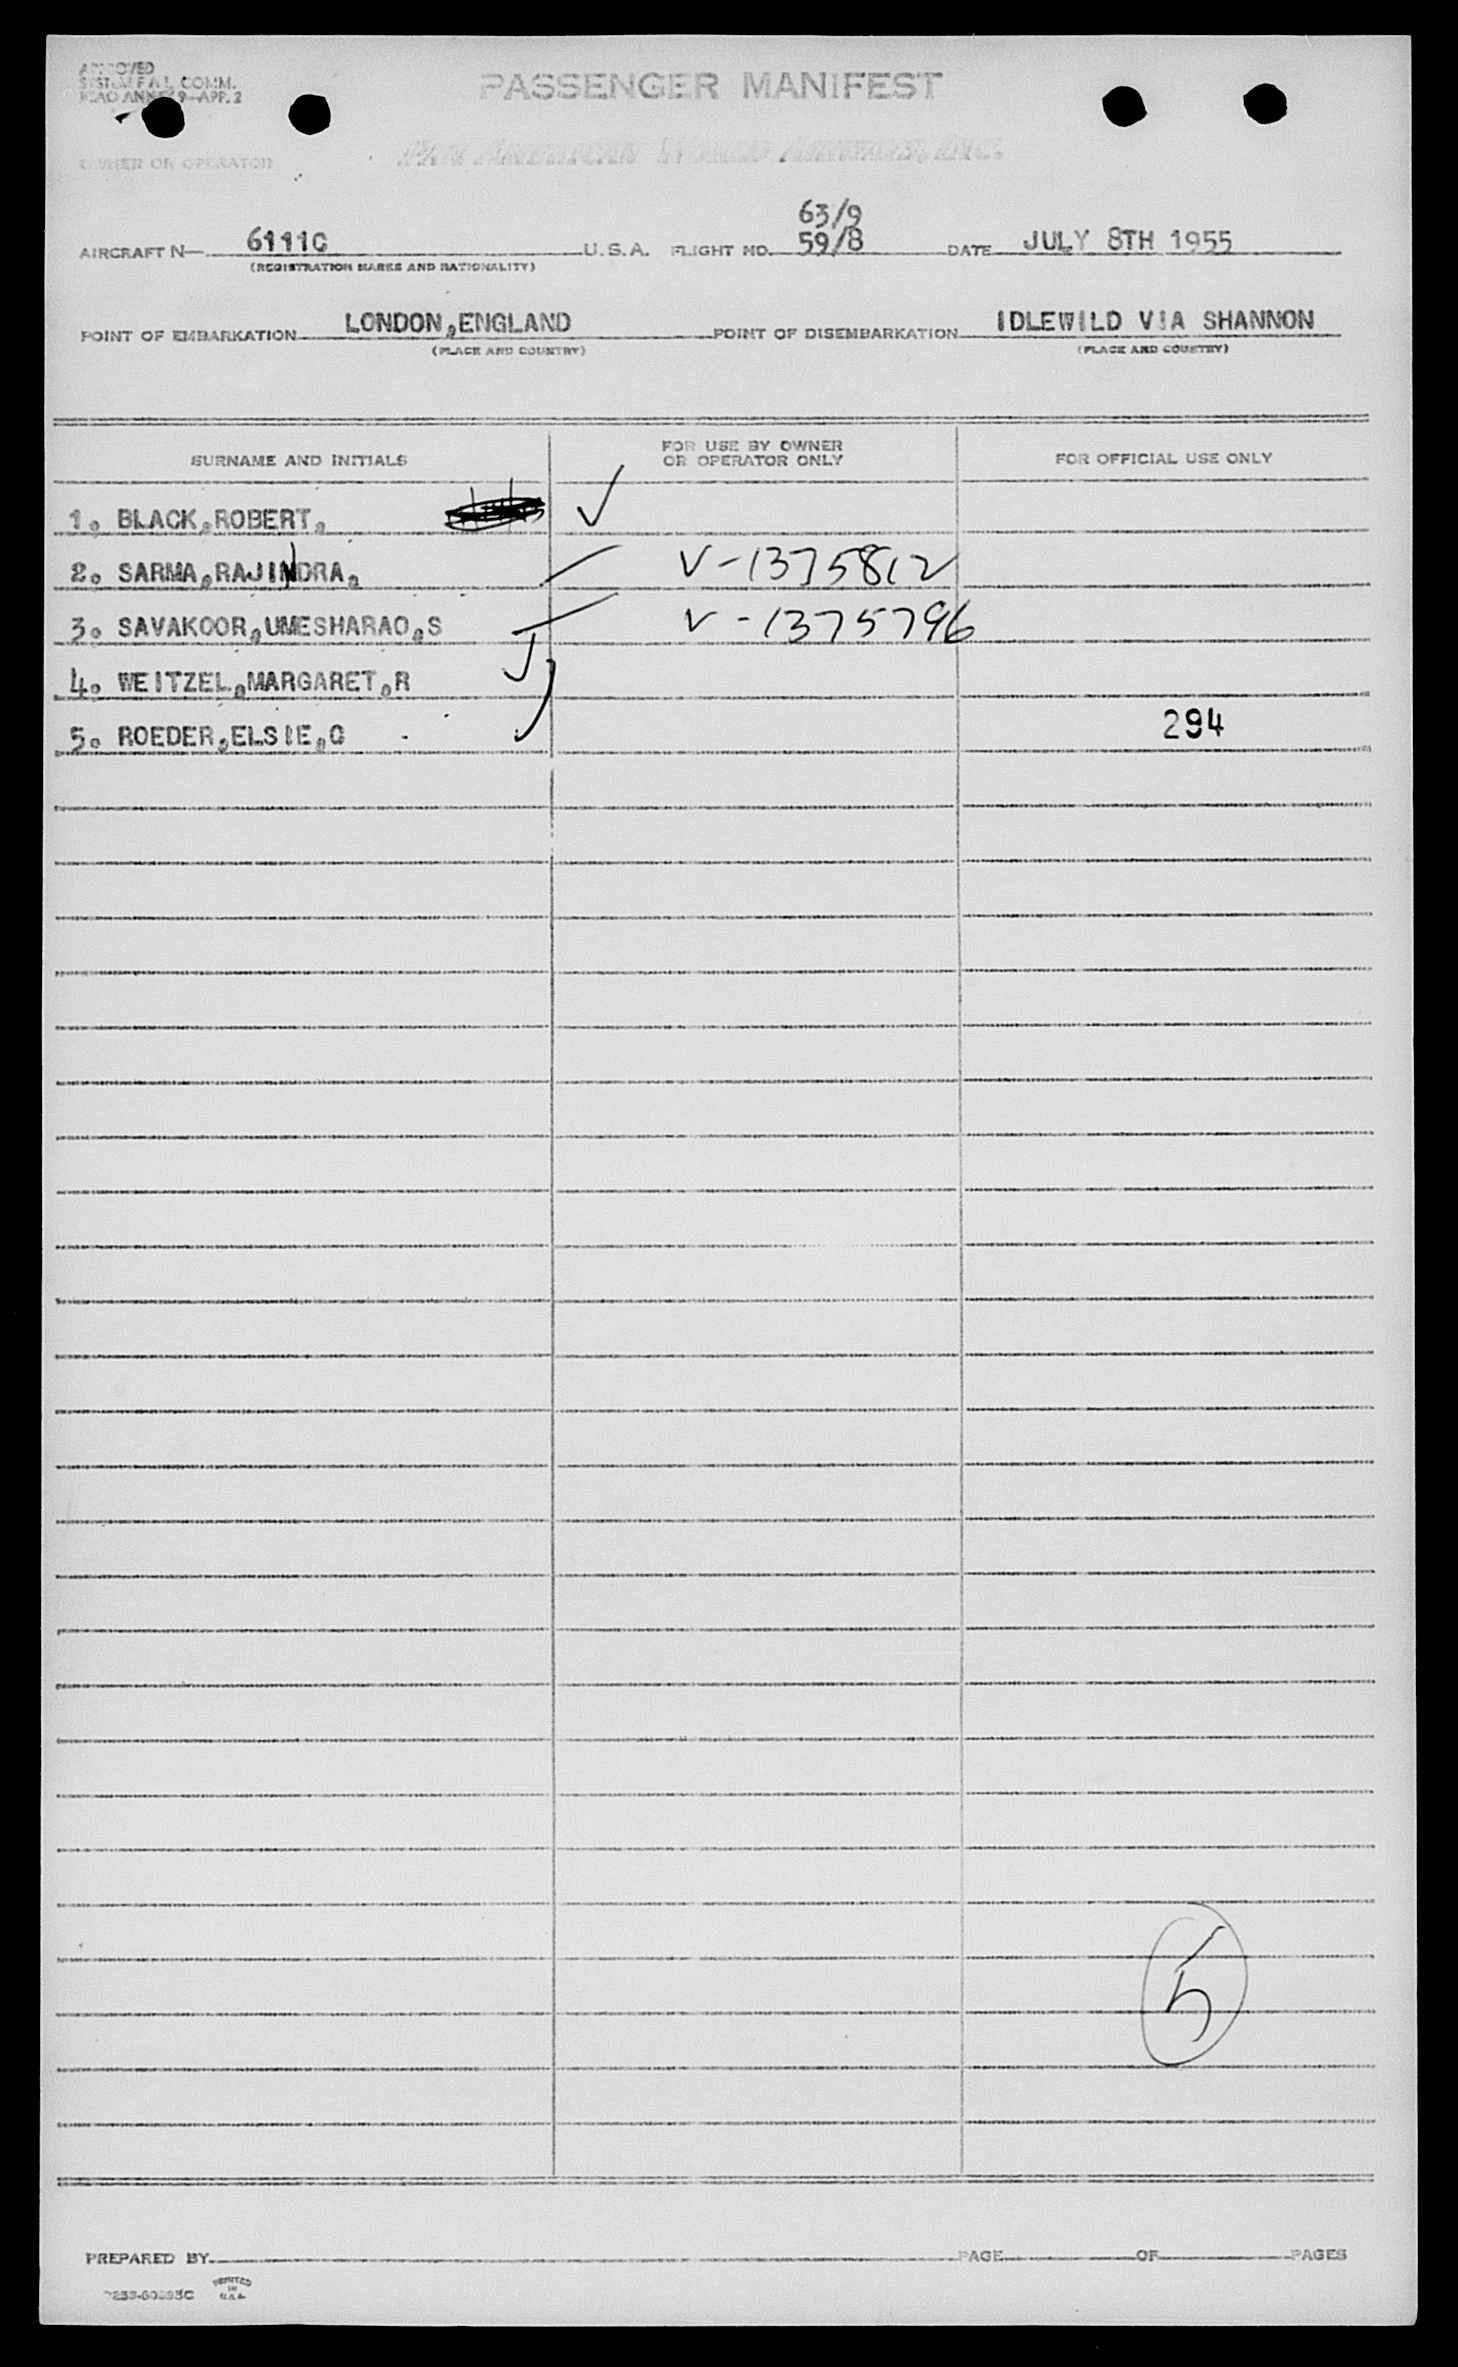 APPROVED
SYSTEM F.A.L. COMM.
ICAO ANNEX 9—APP. 2
PASSENGER MANIFEST
OWNER OR OPERATOR
PAN AMERICAN WORLD AIRWAYS, INC.
63/9
AIRCRAFT N— 6111C U. S. A. FLIGHT NO. 59/8 DATE JULY 8TH 1955
(REGISTRATION MARKS AND NATIONALITY)
POINT OF EMBARKATION LONDON,ENGLAND POINT OF DISEMBARKATION IDLEWILD VIA SHANNON
(PLACE AND COUNTRY) (PLACE AND COUNTRY)
SURNAME AND INITIALS FOR USE BY OWNER OR OPERATOR ONLY FOR OFFICIAL USE ONLY
1. BLACK,ROBERT,
2. SARMA,RAJINDRA, V-1375812
3. SAVAKOOR,UMESHARAO,S V-1375796
4. WEITZEL,MARGARET,R
5. ROEDER,ELSIE,C 294
5
PREPARED BY PAGE OF PAGES
PRINTED IN U.S.A.